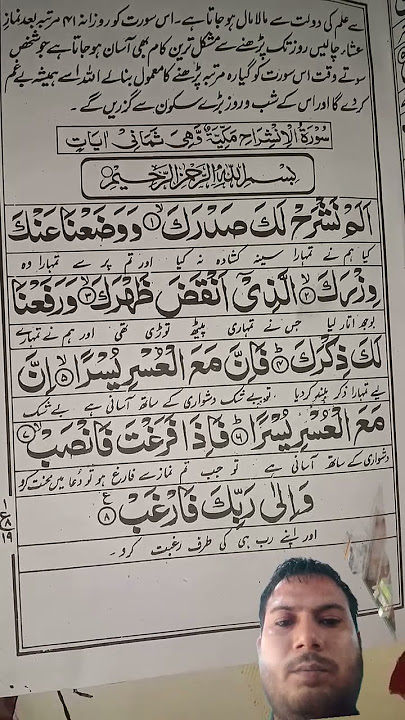 سے علم کی دولت سے مالا مال ہو جاتا ہے۔ اس سورت کو روزانہ ۴۱ مرتبہ بعد نماز
عشاء چالیس روز تک پڑھنے سے مشکل ترین کام بھی آسان ہو جاتا ہے جو شخص
سوتے وقت اس سورت کو گیارہ مرتبہ پڑھنے کا معمول بنالے اللہ اسے ہمیشہ بے غم
کر دے گا اور اس کے شب و روز بڑے سکون سے گزریں گے۔
سُوْرَةُ الْاِنْشِرَاحِ مَكِّيَّةٌ وَّهِيَ ثَمَانِيْ اٰيَاتٍ
بِسْمِ اللّٰهِ الرَّحْمٰنِ الرَّحِيْمِ
اَلَمْ نَشْرَحْ لَكَ صَدْرَكَ ۙ‏﴿۱﴾ وَوَضَعْنَا عَنْكَ
کیا ہم نے تمہارا سینہ کشادہ نہ کیا اور تم پر سے تمہارا وہ
وِزْرَكَ ۙ‏﴿۲﴾ الَّذِيْۤ اَنْقَضَ ظَهْرَكَ ۙ‏﴿۳﴾ وَرَفَعْنَا
بوجھ اتار لیا جس نے تمہاری پیٹھ توڑی تھی اور ہم نے تمہارے
لَكَ ذِكْرَكَ ؕ‏﴿۴﴾ فَاِنَّ مَعَ الْعُسْرِ يُسْرًا ۙ‏﴿۵﴾ اِنَّ
لیے تمہارا ذکر بلند کر دیا تو بے شک دشواری کے ساتھ آسانی ہے بے شک
مَعَ الْعُسْرِ يُسْرًا ؕ‏﴿۶﴾ فَاِذَا فَرَغْتَ فَانْصَبْ ۙ‏﴿۷﴾
دشواری کے ساتھ آسانی ہے تو جب تم نماز سے فارغ ہو تو دعا میں محنت کرو
وَاِلٰى رَبِّكَ فَارْغَبْ ‏﴿۸﴾ ع
اور اپنے رب ہی کی طرف رغبت کرو۔
۱
ع
۸
۱۹